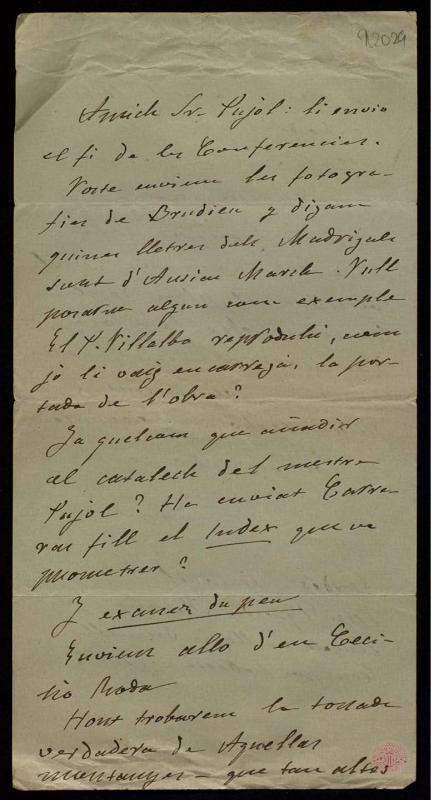 9/2029
Amich Sr. Pujol: li envio
el fi de les Conferencies.
Voste envihm les fotogra-
fies de Brudieu y digam
quines lletres dels Madrigals
sont d'Ausias March. Vull
posarne algun com exemple
El P. Villalba reproduhi, com
jo li vaig encarregá, la por-
tada de l'obra?
Ja quelcom que añadir
al catalech del mestre
Pujol? Ha enviat Carre
ras fill el Index que va
prometrer?
Y
Envihm allo d'en Ceci-
lio Roda
Hont trobarem la tonada
verdadera de Aquellas
montanyas – que tan altas